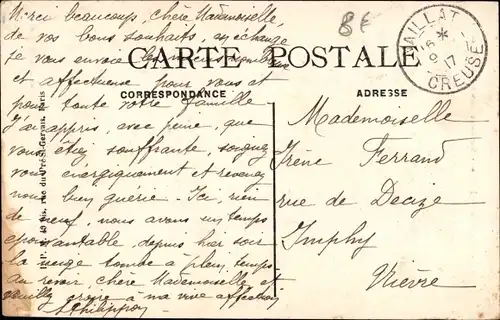 Merci beaucoup, chère Mademoiselle,
de vos bons souhaits, en échange
je vous envoie les miens
et affectueux pour vous et
pour toute votre famille
J'ai appris, avec peine, que
vous étiez souffrante, soignez
vous énergiquement et revenez
nous bien guérie - Ici, rien
de neuf, nous avons un temps
épouvantable, depuis hier soir
la neige tombe à plein temps.
Au revoir, chère Mademoiselle et
veuillez croire à ma vive affection
Philippon
8F
CARTE POSTALE
CORRESPONDANCE
ADRESSE
AILLAT
16 *
9 - 1
17
CREUSE
Mademoiselle
Irène Ferrand
rue de Decize
Imphy
Nièvre
Paris